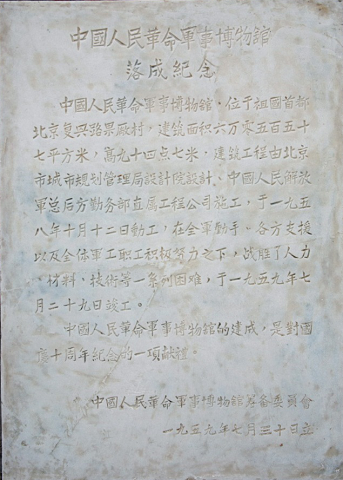 中國人民革命軍事博物館
落成紀念
中國人民革命軍事博物館，位于祖國首都
北京复兴路黑厰村，建筑面积六万零五百五十
七平方米，高九十四点七米，建筑工程由北京
市城市規划管理局設計院設計，中國人民解放
軍总后方勤务部直属工程公司施工，于一九五
八年十月十二日动工，在全軍动手、各方支援
以及全体軍工职工积极努力之下，战胜了人力
、材料、技術等一系列困难，于一九五九年七
月二十九日竣工。
中國人民革命軍事博物館的建成，是對國
慶十周年紀念的一項献禮。
中國人民革命軍事博物館筹备委員會
一九五九年七月三十日立